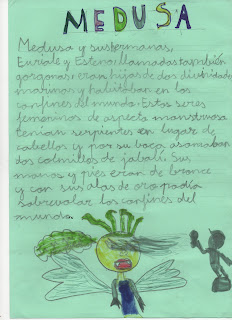 MEDUSA
Medusa y sus hermanas,
Euríale y Esteno, llamadas también
gorgonas eran hijas de dos divinidades
marinas y habitaban en los
confines del mundo. Estos seres
femeninos de aspecto monstruoso
tenían serpientes en lugar de
cabellos y por su boca asomaban
dos colmillos de jabalí. Sus
manos y pies eran de bronce
y con sus alas de oro podía
sobrevolar los confines del
mundo.